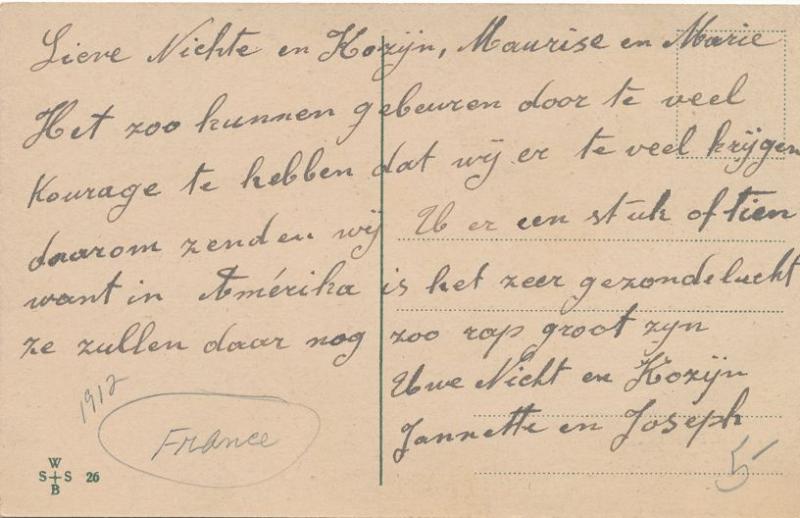 Lieve Nichte en Kozijn, Maurise en Marie
Het zoo kunnen gebeuren door te veel
Kourage te hebben dat wij er te veel krijgen
daarom zenden wij U er een stuk of tien
want in Amérika is het zeer gezonde lucht
ze zullen daar nog zoo rap groot zyn
Uwe Nicht en Kozijn
Jannette en Joseph
1912
France
5
W
S S 26
B